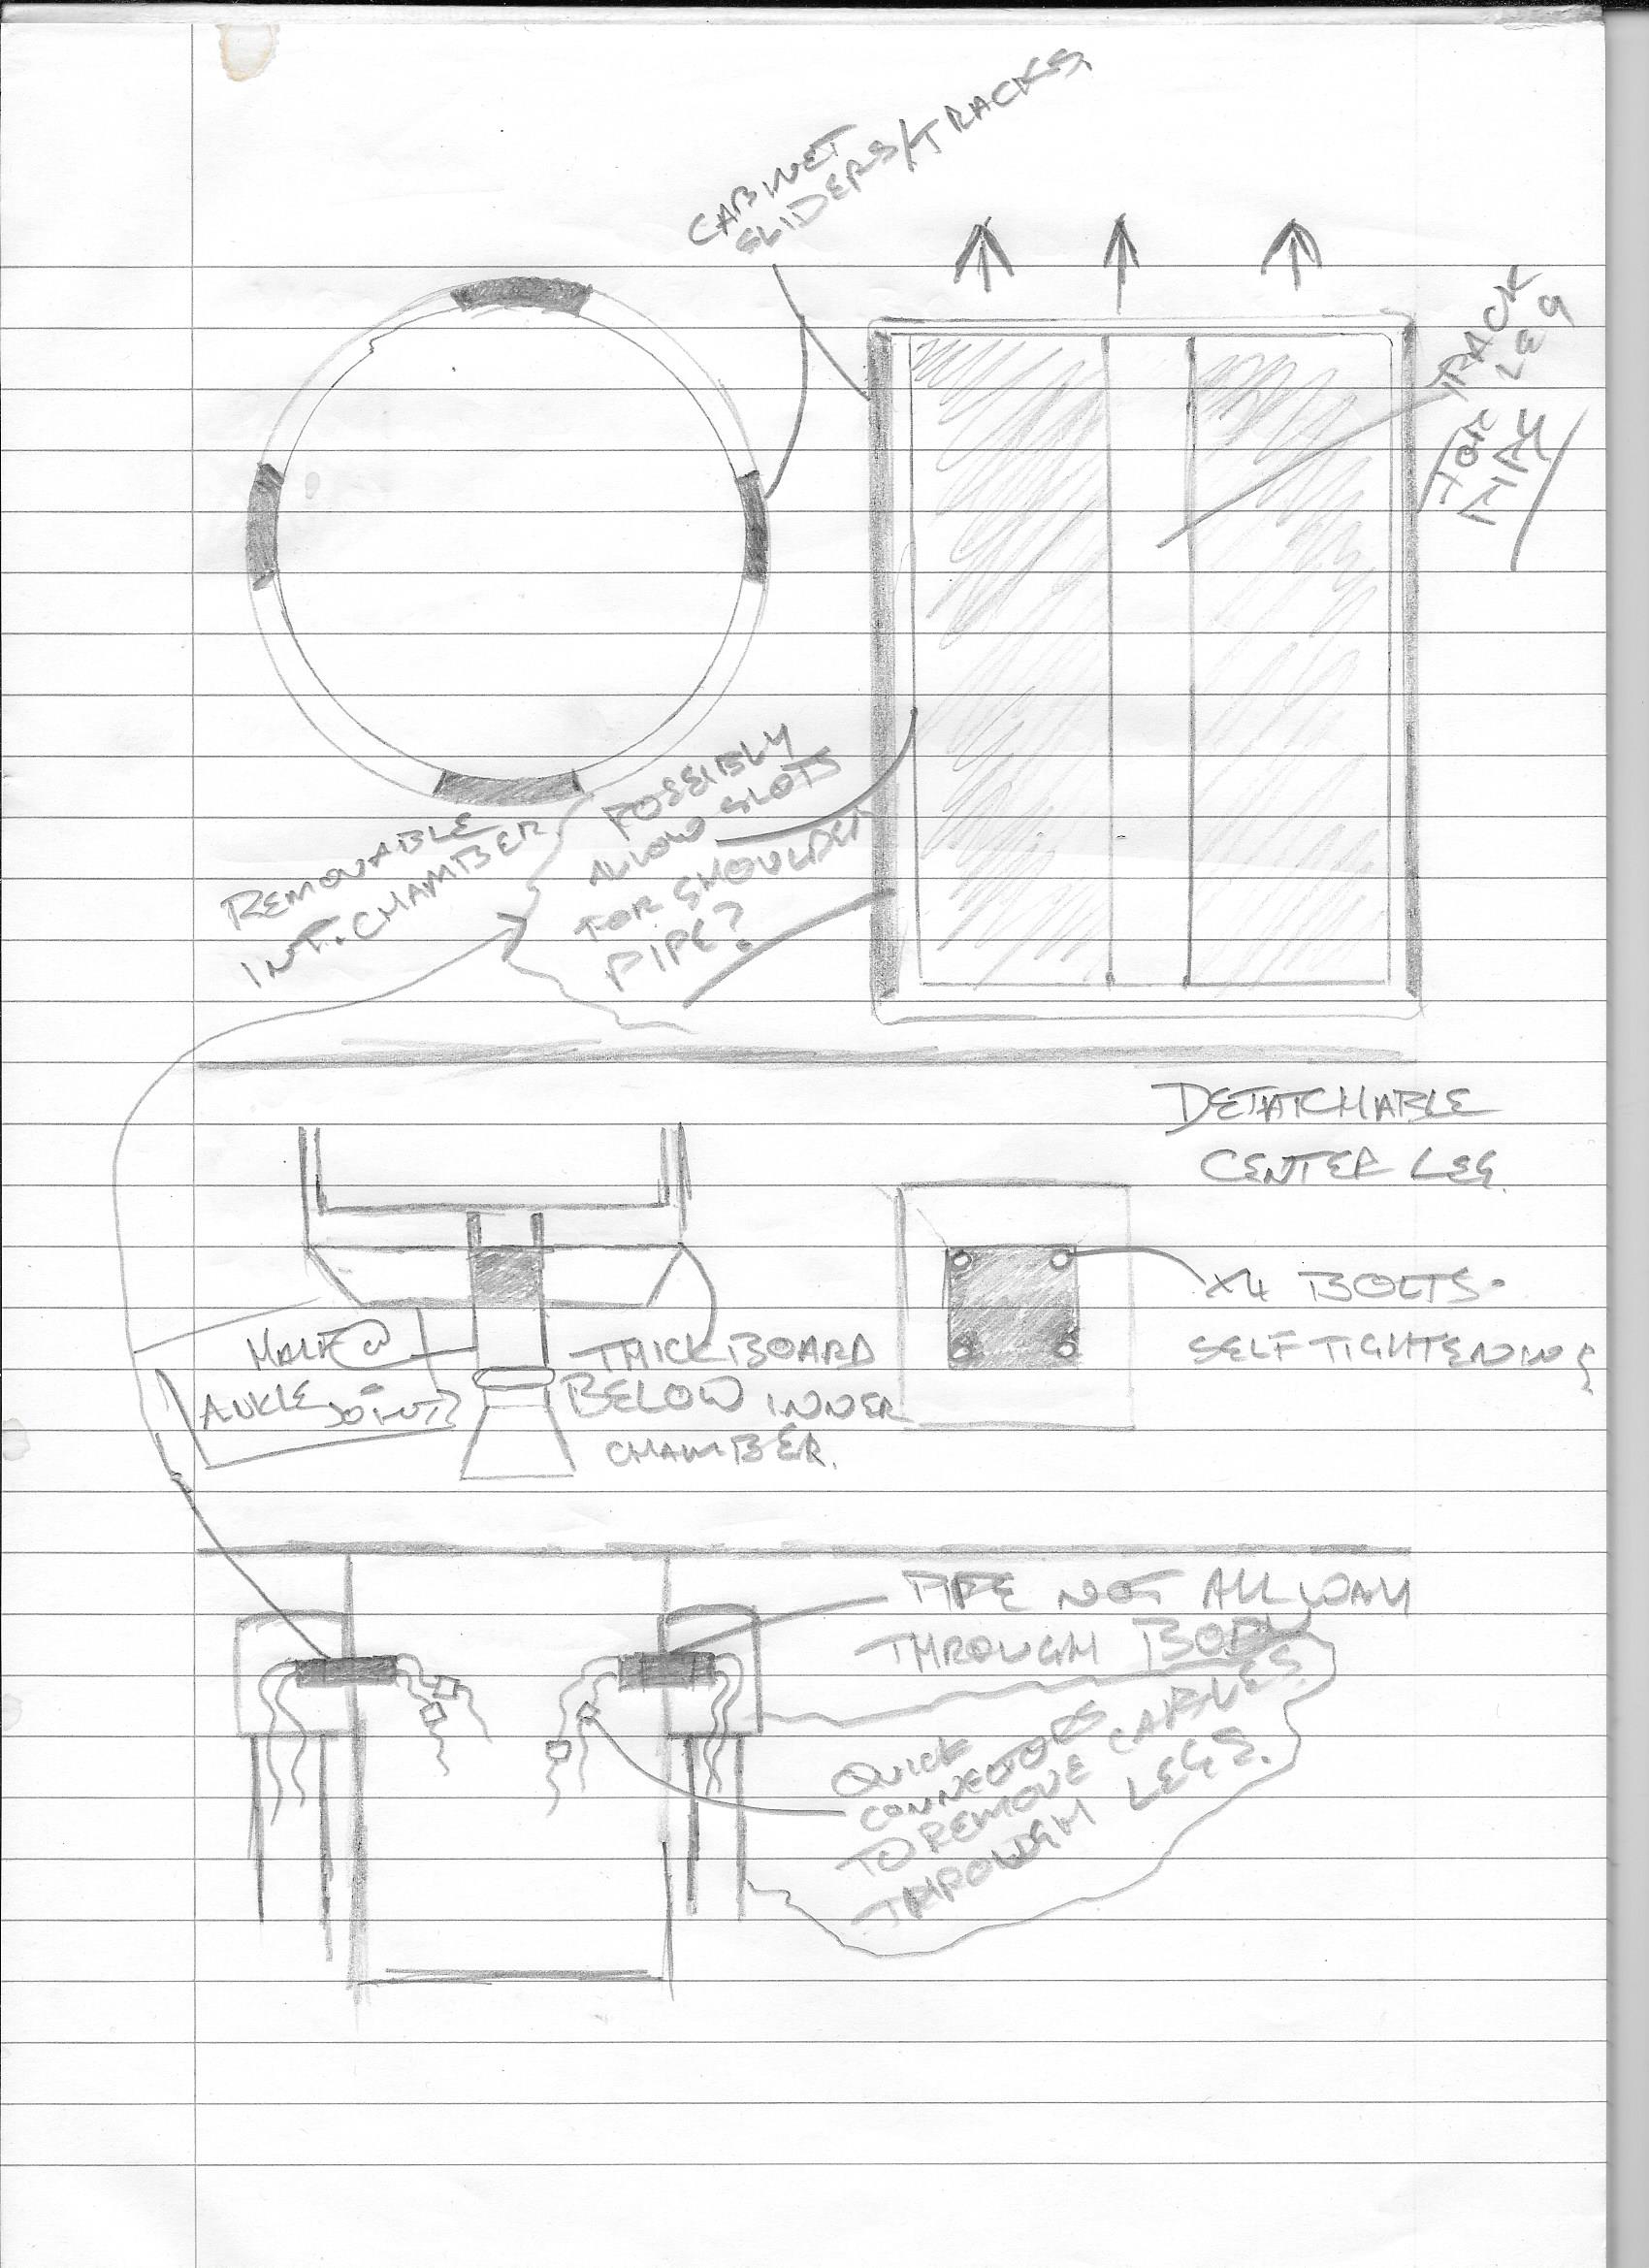 CABINET
SLIDERS/TRACKS
TRACK
FOR LEG
REMOVABLE
INT. CHAMBER
POSSIBLY
ALLOW SLOTS
FOR SHOULDER
PIPE?
DETATCHABLE
CENTER LEG.
X4 BOLTS.
SELF TIGHTENING
HALF
ANKLE JOINT?
THICK BOARD
BELOW INNER
CHAMBER.
PIPE NOT ALL WAY
THROUGH BODY
QUICK
CONNECTORS
TO REMOVE CABLES
THROUGH LEGS.